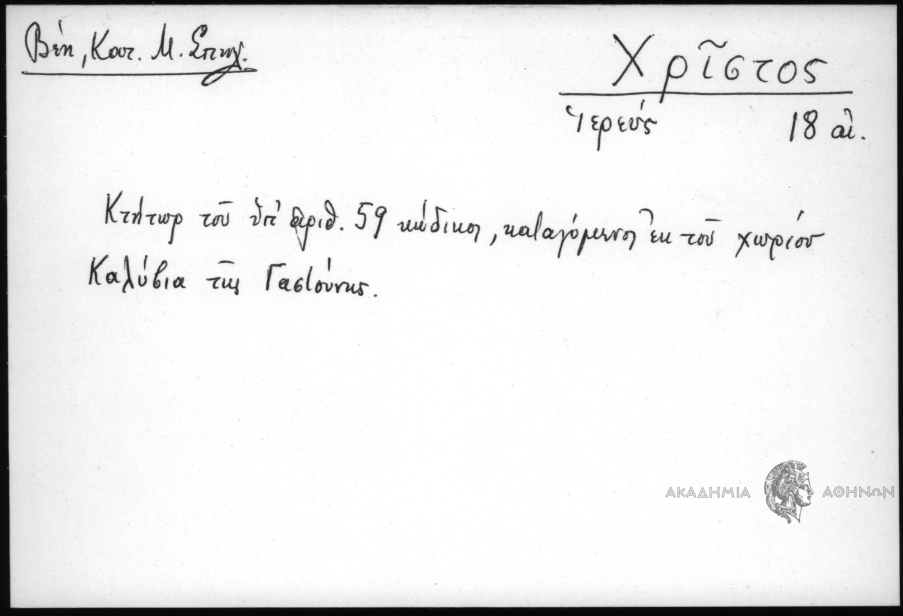 Βέη, Κατ. Μ. Σπηλ.
Χρῖστος
Ἱερεύς 18 αἰ.
Κτήτωρ τοῦ ὑπ' ἀριθ. 59 κώδικος, καταγόμενος ἐκ τοῦ χωρίου
Καλύβια τῆς Γαστούνης.
ΑΚΑΔΗΜΙΑ ΑΘΗΝΩΝ